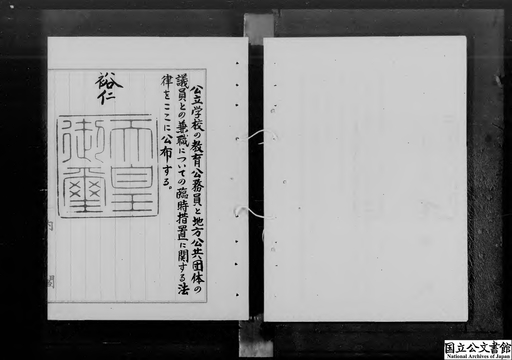 公立学校の教育公務員と地方公共団体の
議員との兼職についての臨時措置に関する法
律をここに公布する。
裕仁
天皇
御璽
内閣
国立公文書館
National Archives of Japan